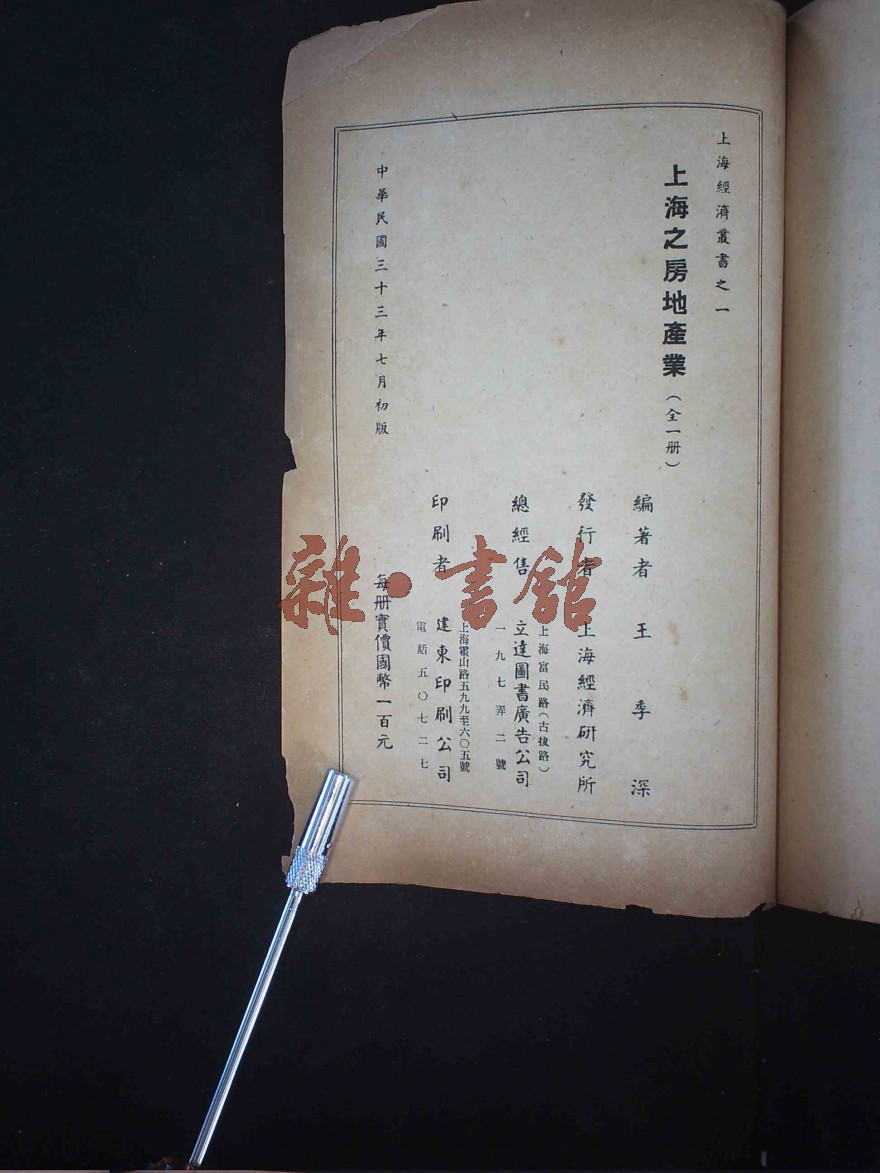 上海經濟叢書之一
上海之房地產業（全一册）
編著者 王季深
發行者 上海經濟研究所
總經售 立達圖書廣告公司
上海富民路（古拔路）
一九七弄二號
印刷者 建東印刷公司
上海霍山路五九九至六〇五號
電話五〇七二七
中華民國三十三年七月初版
每册實價國幣一百元
雜·書館